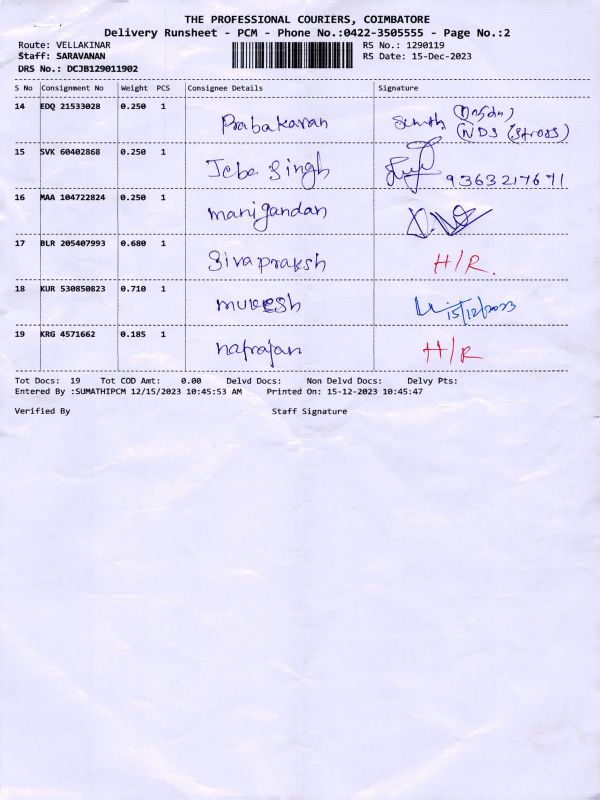 THE PROFESSIONAL COURIERS, COIMBATORE
Delivery Runsheet - PCM - Phone No.:0422-3505555 - Page No.:2
Route: VELLAKINAR RS No.: 1290119
Staff: SARAVANAN RS Date: 15-Dec-2023
DRS No.: DCJB129011902
S No Consignment No Weight PCS Consignee Details Signature
14 EDQ 21533028 0.250 1 Prabakaran
NDS (Stross)
15 SVK 60402868 0.250 1 Jeba Singh 9363217671
16 MAA 104722824 0.250 1 manigandan
17 BLR 205407993 0.680 1 Sivapraksh H/R.
18 KUR 530850823 0.710 1 mukesh 15/12/2023
19 KRG 4571662 0.185 1 natrajan H/R
Tot Docs: 19 Tot COD Amt: 0.00 Delvd Docs: Non Delvd Docs: Delvy Pts:
Entered By :SUMATHIPCM 12/15/2023 10:45:53 AM Printed On: 15-12-2023 10:45:47
Verified By Staff Signature